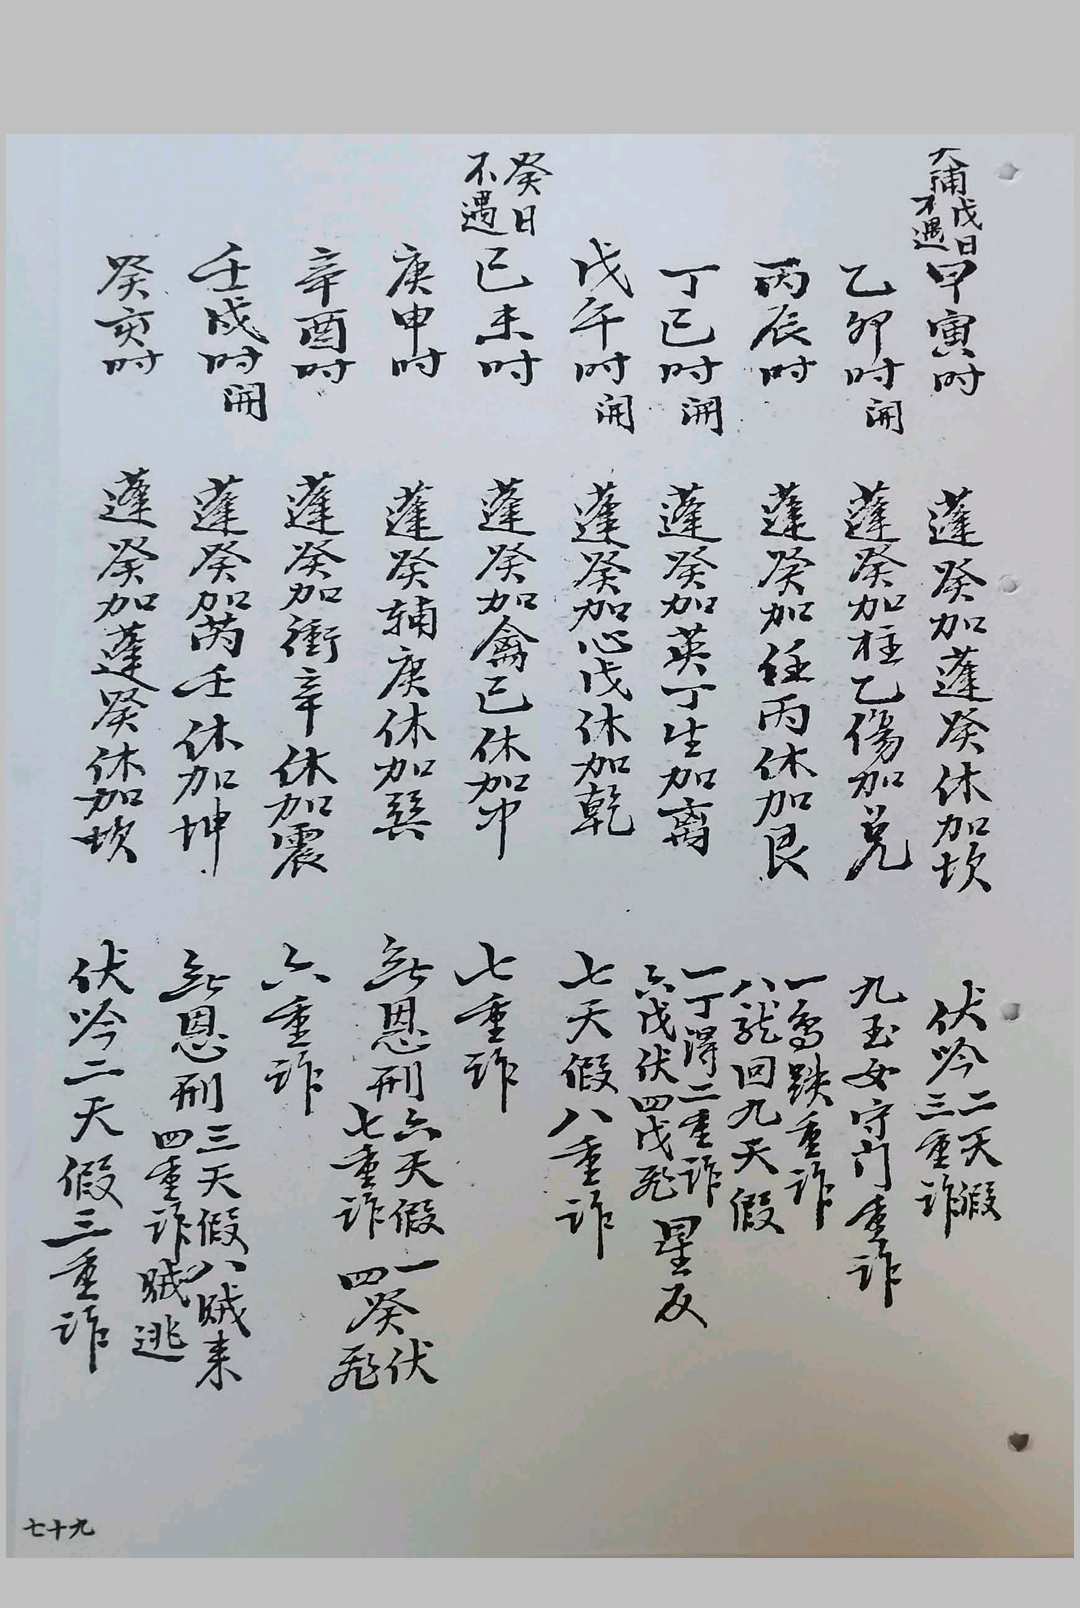 天浦戊日不遇
甲寅时 蓬癸加蓬癸休加坎 伏吟二天假三重诈
乙卯时開 蓬癸加柱乙傷加兑 九玉女守门重诈
丙辰时 蓬癸加任丙休加艮 一鸟跌重诈八龙回九天假
丁巳时開 蓬癸加英丁生加离 一丁得二重诈六戊伏四戊飛星反
戊午时開 蓬癸加心戊休加乾 七天假八重诈
癸日不遇
己未时 蓬癸加禽己休加中 七重诈
庚申时 蓬癸辅庚休加巽 無恩刑六天假七重诈一癸伏四癸飛
辛酉时 蓬癸加衝辛休加震 六重诈
壬戌时開 蓬癸加芮壬休加坤 無恩刑三天假四重诈八贼来贼逃
癸亥时 蓬癸加蓬癸休加坎 伏吟二天假三重诈
七十九